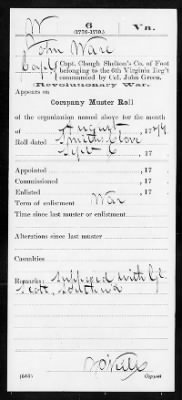 W
6
Va.
(1776-1778.)
John Ware
Capt. Clough Shelton's Co. of Foot
belonging to the 6th Virginia Reg't
commanded by Col. John Green.
Revolutionary War.
Appears on
Company Muster Roll
of the organization named above for the month
of August, 1779
Roll dated Smiths Clove
Sept 6, 177
Appointed, 17
Commissioned, 17
Enlisted, 17
Term of enlistment War
Time since last muster or enlistment
Alterations since last muster
Casualties
Remarks: supposed with Gl
Scott, Southwd
(635)
Copyist.